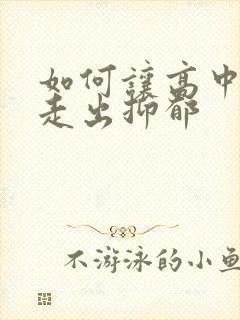 如何讓高中
走出抑郁
不游泳的小鱼